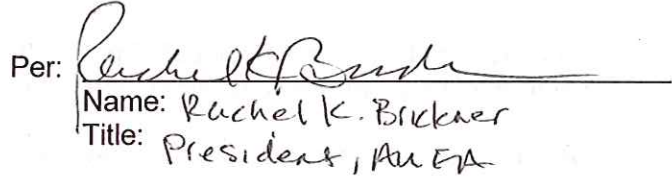 Per: Rachel K Brickner
Name: Rachel K. Brickner
Title: President, AUFA